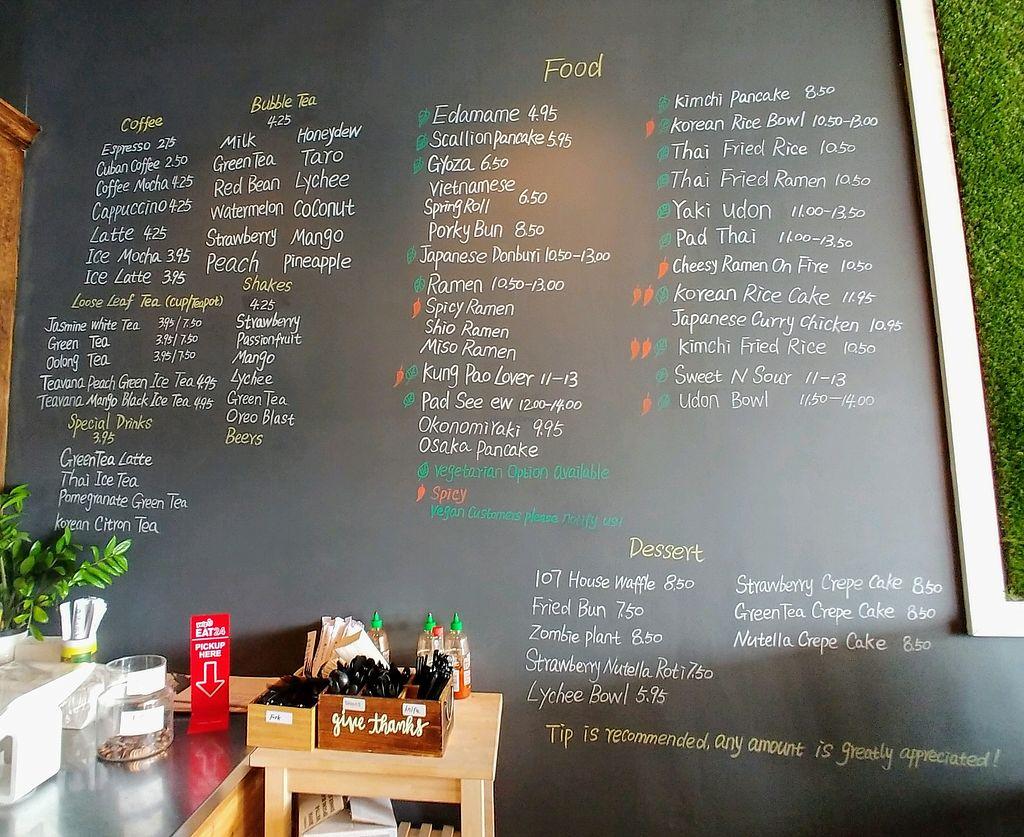 Coffee
Espresso 2.75
Cuban Coffee 2.50
Coffee Mocha 4.25
Cappuccino 4.25
Latte 4.25
Ice Mocha 3.95
Ice Latte 3.95
Loose Leaf Tea (cup/Teapot)
Jasmine White Tea 3.95/7.50
Green Tea 3.95/7.50
Oolong Tea 3.95/7.50
Teavana Peach Green Ice Tea 4.95
Teavana Mango Black Ice Tea 4.95
Special Drinks
3.95
Green Tea Latte
Thai Ice Tea
Pomegranate Green Tea
Korean Citron Tea
Bubble Tea
4.25
Milk Honeydew
Green Tea Taro
Red Bean Lychee
Watermelon Coconut
Strawberry Mango
Peach Pineapple
Shakes
4.25
Strawberry
Passionfruit
Mango
Lychee
Green Tea
Oreo Blast
Beers
Food
Edamame 4.95
Scallion Pancake 5.95
Gyoza 6.50
Vietnamese
Spring Roll 6.50
Porky Bun 8.50
Japanese Donburi 10.50-13.00
Ramen 10.50-13.00
Spicy Ramen
Shio Ramen
Miso Ramen
Kung Pao Lover 11-13
Pad See ew 12.00-14.00
Okonomiyaki 9.95
Osaka Pancake
Vegetarian Option Available
Spicy
Vegan Customers please notify us!
Kimchi Pancake 8.50
Korean Rice Bowl 10.50-13.00
Thai Fried Rice 10.50
Thai Fried Ramen 10.50
Yaki Udon 11.00-13.50
Pad Thai 11.00-13.50
Cheesy Ramen On Fire 10.50
Korean Rice Cake 11.95
Japanese Curry Chicken 10.95
Kimchi Fried Rice 10.50
Sweet N Sour 11-13
Udon Bowl 11.50-14.00
Dessert
107 House Waffle 8.50
Fried Bun 7.50
Zombie plant 8.50
Strawberry Nutella Roti 7.50
Lychee Bowl 5.95
Strawberry Crepe Cake 8.50
Green Tea Crepe Cake 8.50
Nutella Crepe Cake 8.50
Tip is recommended, any amount is greatly appreciated!
yelp
EAT24
PICKUP
HERE
Fork
give thanks